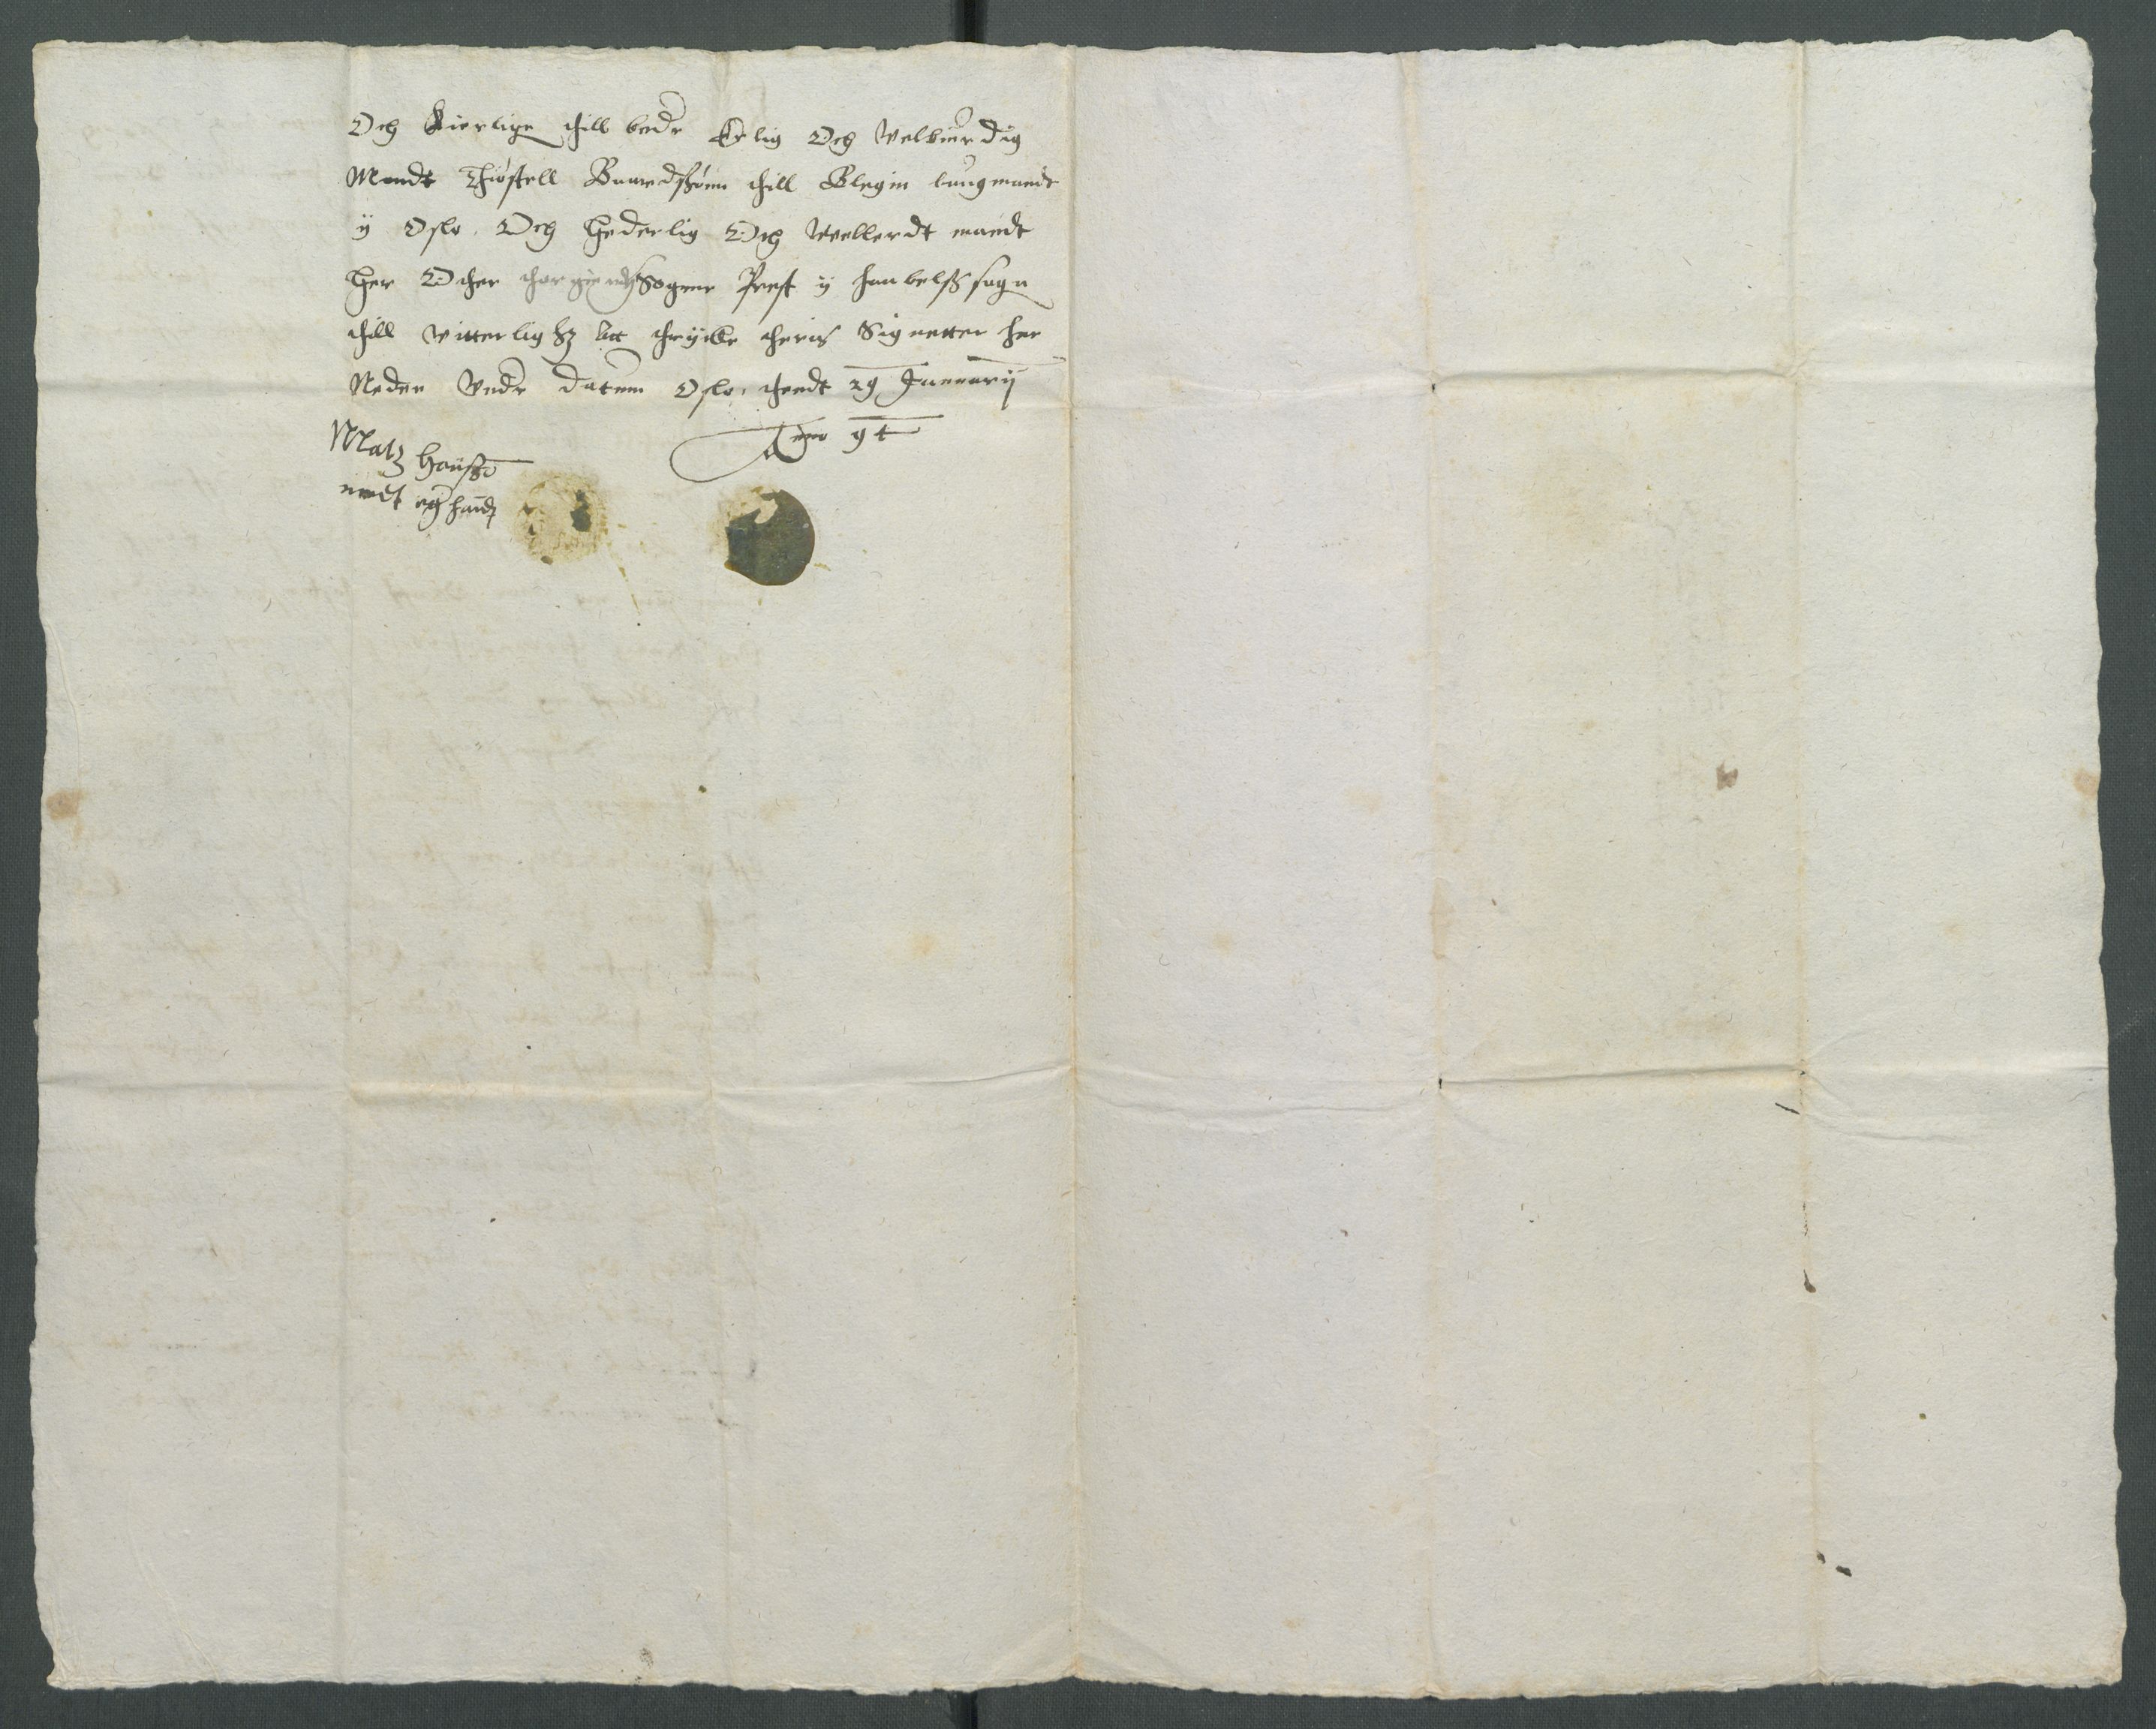 Och Kierlige thill beder Erlig Och Velbiurdig
Mandt Thiøstell Baardszønn thill Elgin laugmandt
ÿ Oslo. Och hederlig Och Wellerdt mandt
Her Other Sogne Prest ÿ
thill Vitterlighz At thrÿcke theris Signetter her
Neden Vnder datum Oslo, thendt 29 Januarij
Anno 94
Matz Hanszø
medt eg handt